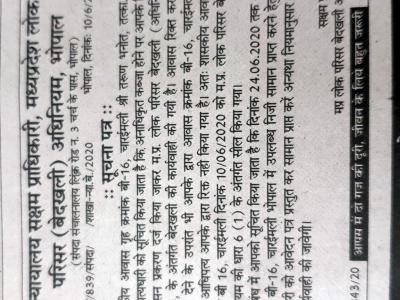 न्यायालय सक्षम प्राधिकारी, मध्यप्रदेश लोक
परिसर (बेदखली) अधिनियम, भोपाल
(संपदा संचालनालय लिंक रोड नं. 3 चर्च के पास, भोपाल)
7/839/संपदा/ /शाखा-न्या.बे./2020 भोपाल, दिनांक: 10/6/2
:: सूचना पत्र ::
कीय आवास गृह क्रमांक बी-16, चारईमली श्री तरूण भनोत, तत्का.
त्यधारी को सूचित किया जाता है कि अनाधिकृत कब्जा होने पर आपके f
सन प्रकरण दर्ज किया जाकर म.प्र. लोक परिसर बेदखली (अधिनि
के अंतर्गत बेदखली की कार्यवाही की गयी है। आवास रिक्त कर
देने के उपरांत भी आपके द्वारा आवास क्रमांक बी-16, चारईमल
आधिपत्य आपके द्वारा रिक्त नहीं किया गया है। अतः शासकीय आवा
16, चारईमली दिनांक 10/06/2020 को म.प्र. लोक परिसर बे
यम की धारा 6 (1) के अंतर्गत सील किया गया।
बंध में आपको सूचित किया जाता है कि दिनांक 24.06.2020 तक
बी-16, चारईमली भोपाल में उपलब्ध निजी सामान प्राप्त करने हेतु
री को आवेदन पत्र प्रस्तुत कर सामान प्राप्त करें अन्यथा नियमानुसार
र्यवाही की जावेगी।
सक्षम प्र
मप्र लोक परिसर बेदखली अ
43/20 आपस में दो गज की दूरी, जीवन के लिये बहुत जरूरी